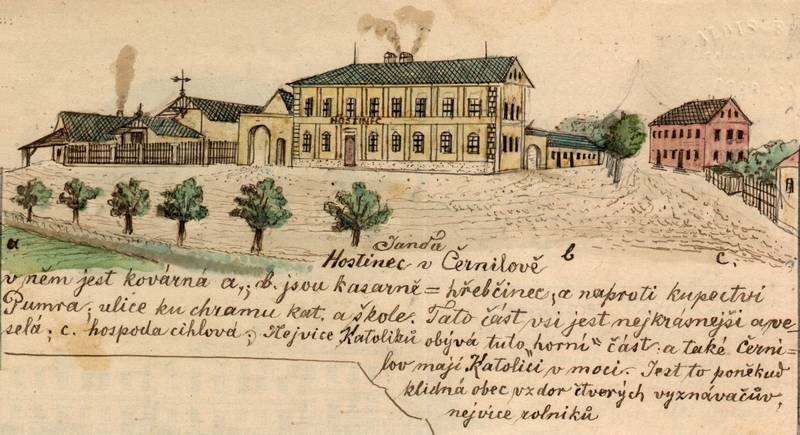 HOSTINEC
Janďa
Hostinec v Černilově
a
b
c.
v něm jest kovárná a,; b. jsou kasarně = hřebčinec; a naproti kupectví
Pumra; ulice ku chramu kat. a škole. Tato část vsi jest nejkrásnejši a ve-
selá; c. hospoda cihlová; Nejvice Katoliků obývá tuto „horní" část: a také Černi-
lov mají „Katolici" v moci. Jest to poněkud
klidná obec vzdor čtverých vyznávačův,
nejvice rolníků